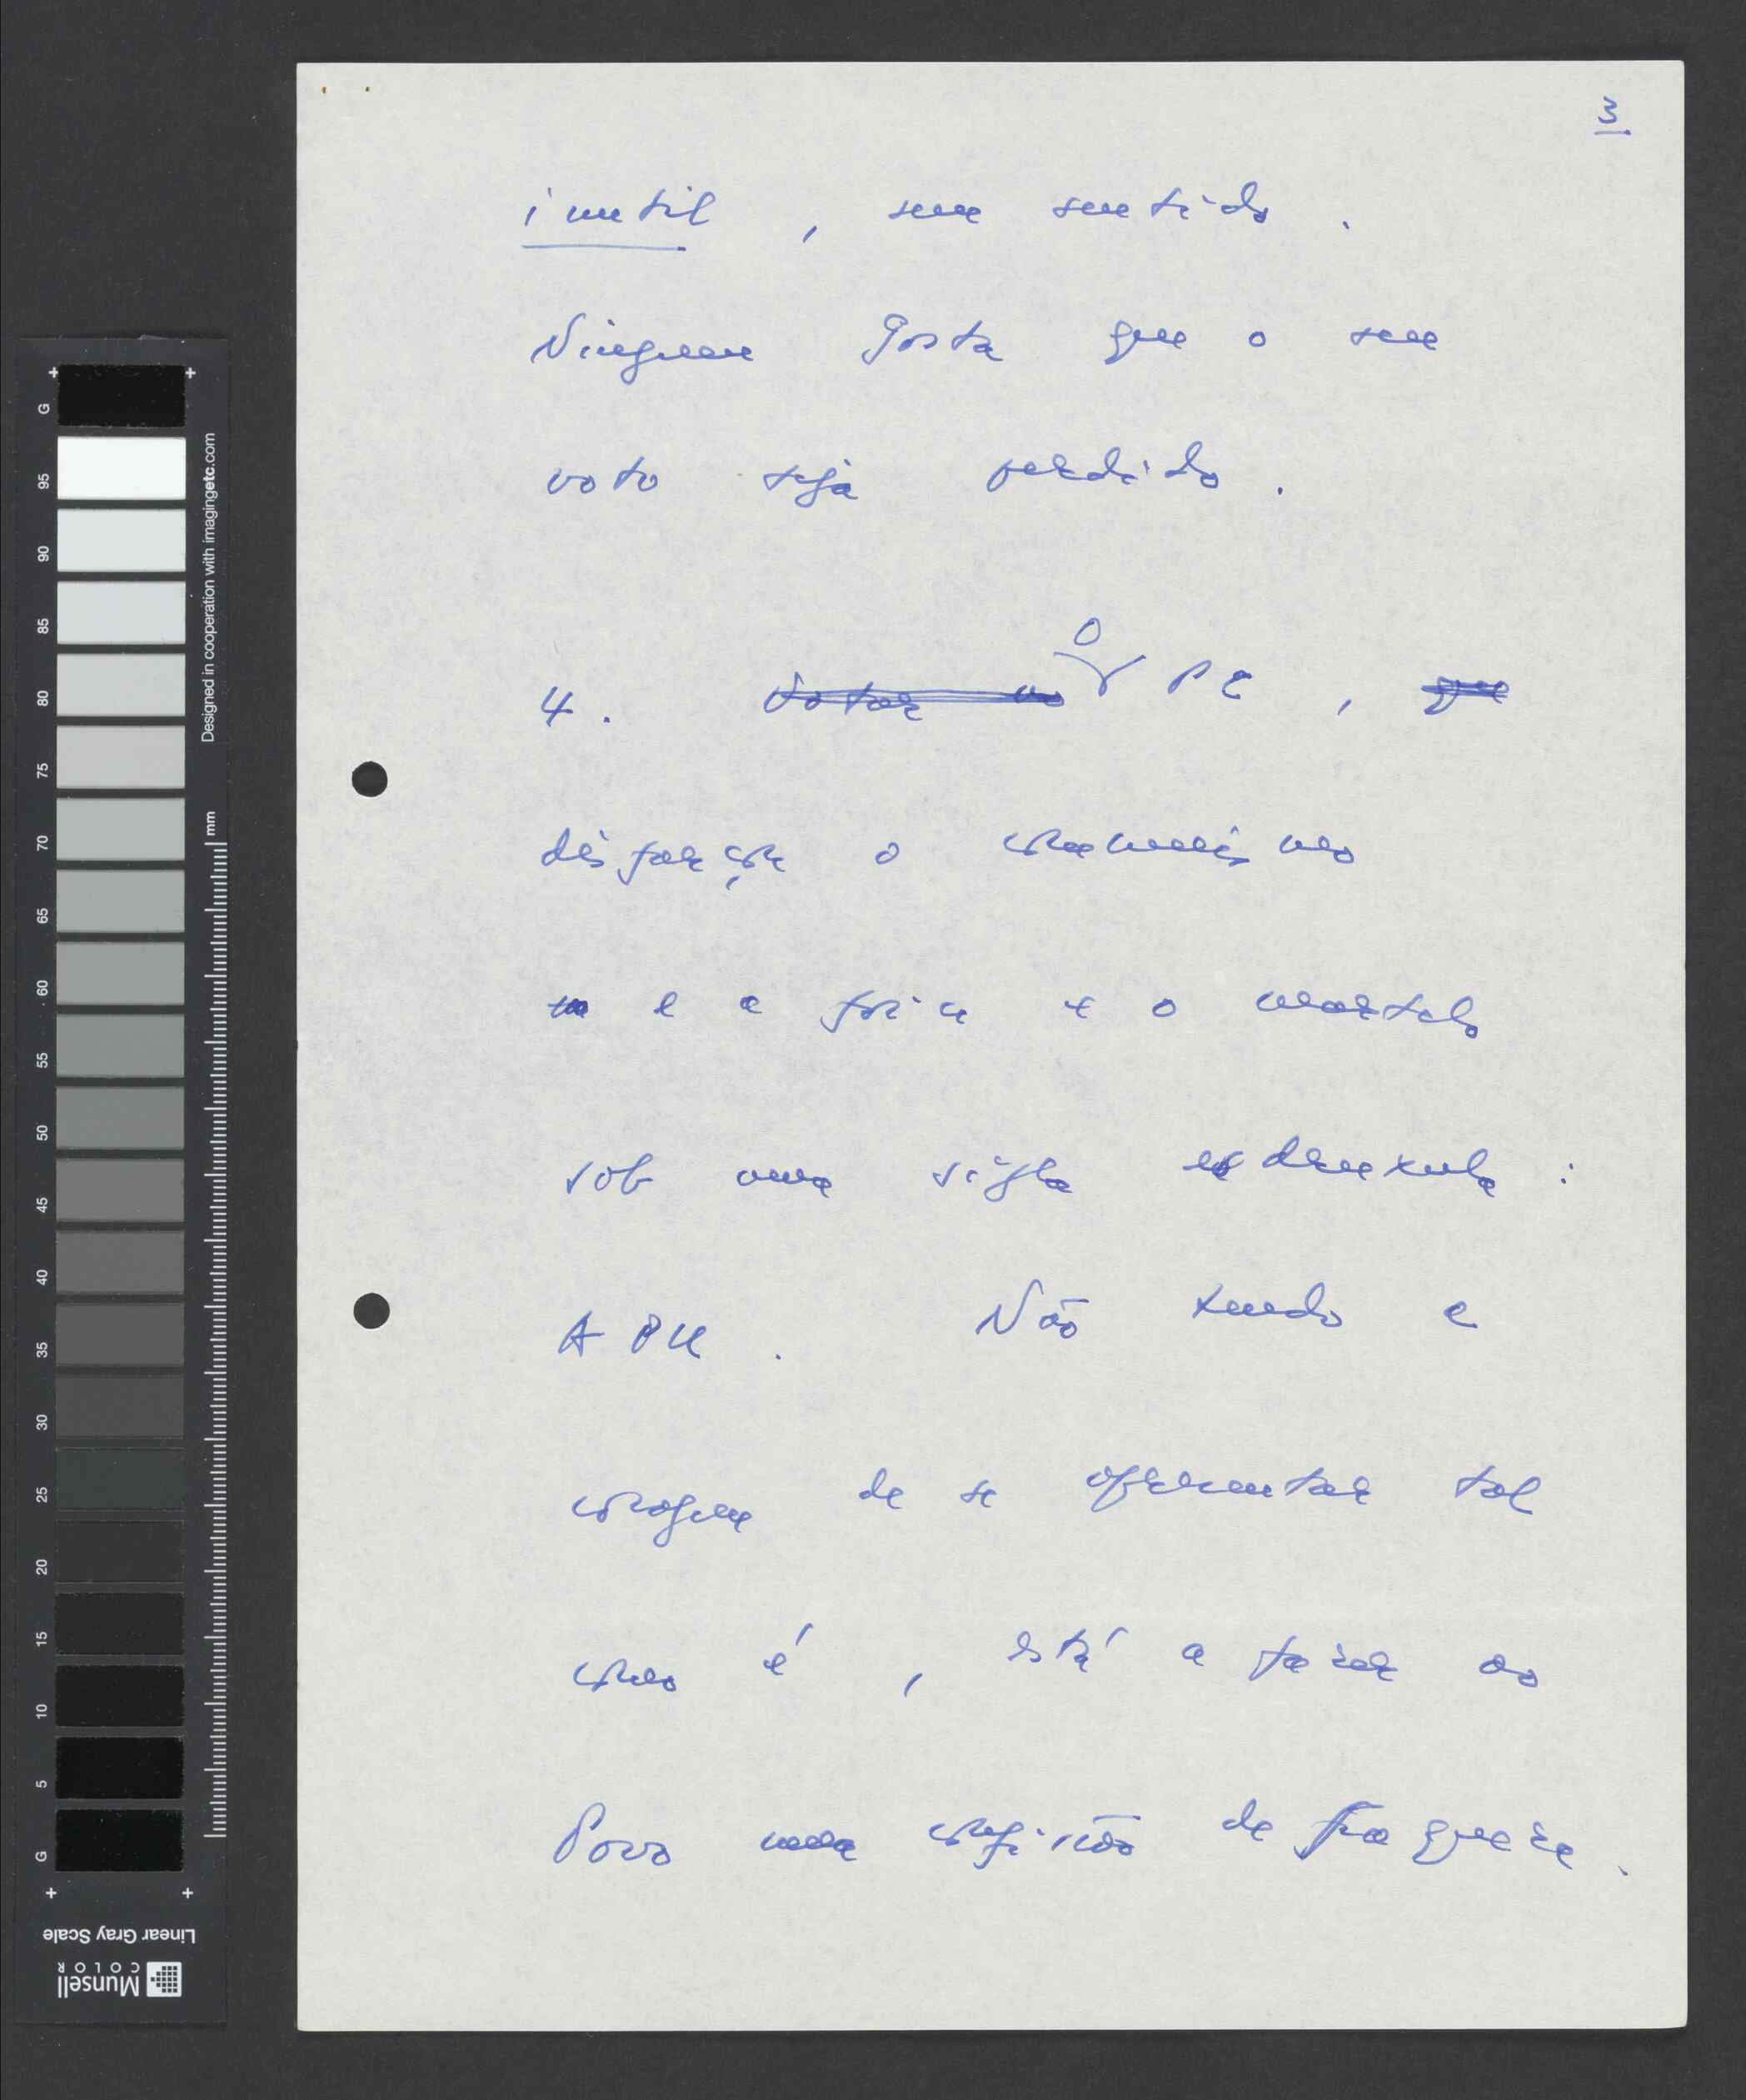 3
inutil, sem sentido.
Ninguem gosta que o seu
voto seja perdido.
4. Votar no O PC, que
disfarça o comunismo
e a foice e o martelo
sob uma sigla esdruxula:
APU. Não tendo a
coragem de se apresentar tal
como é, está a fazer ao
Povo uma confissão de fraqueza.
G
95
90
85
80
75
70
65
60
55
50
45
40
35
30
25
20
15
10
5
G
Designed in cooperation with imagingetc.com
mm
Linear Gray Scale
Munsell
COLOR